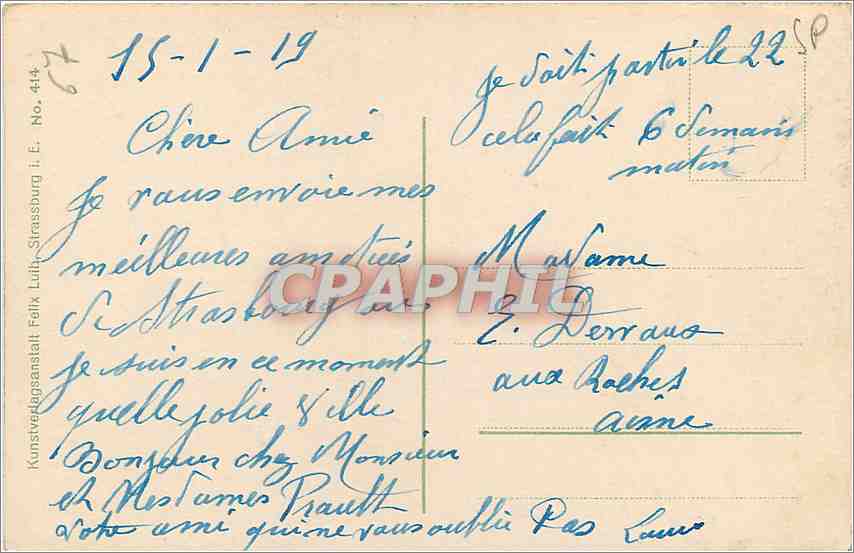 67
SP
15-1-19
Chère Amie
Je vous envoie mes
meilleures amitiés
de Strasbourg ou
je suis en ce moment
quelle jolie ville
Bonjour chez Monsieur
et Mesdames Prault
votre ami qui ne vous oublie Pas
Je doit partir le 22
cela fait 6 demain
matin
Madame
E. Dervaux
aux Roches
Aisne
Kunstverlagsanstalt Felix Luib, Strassburg i. E. No. 414
CPAPHIL